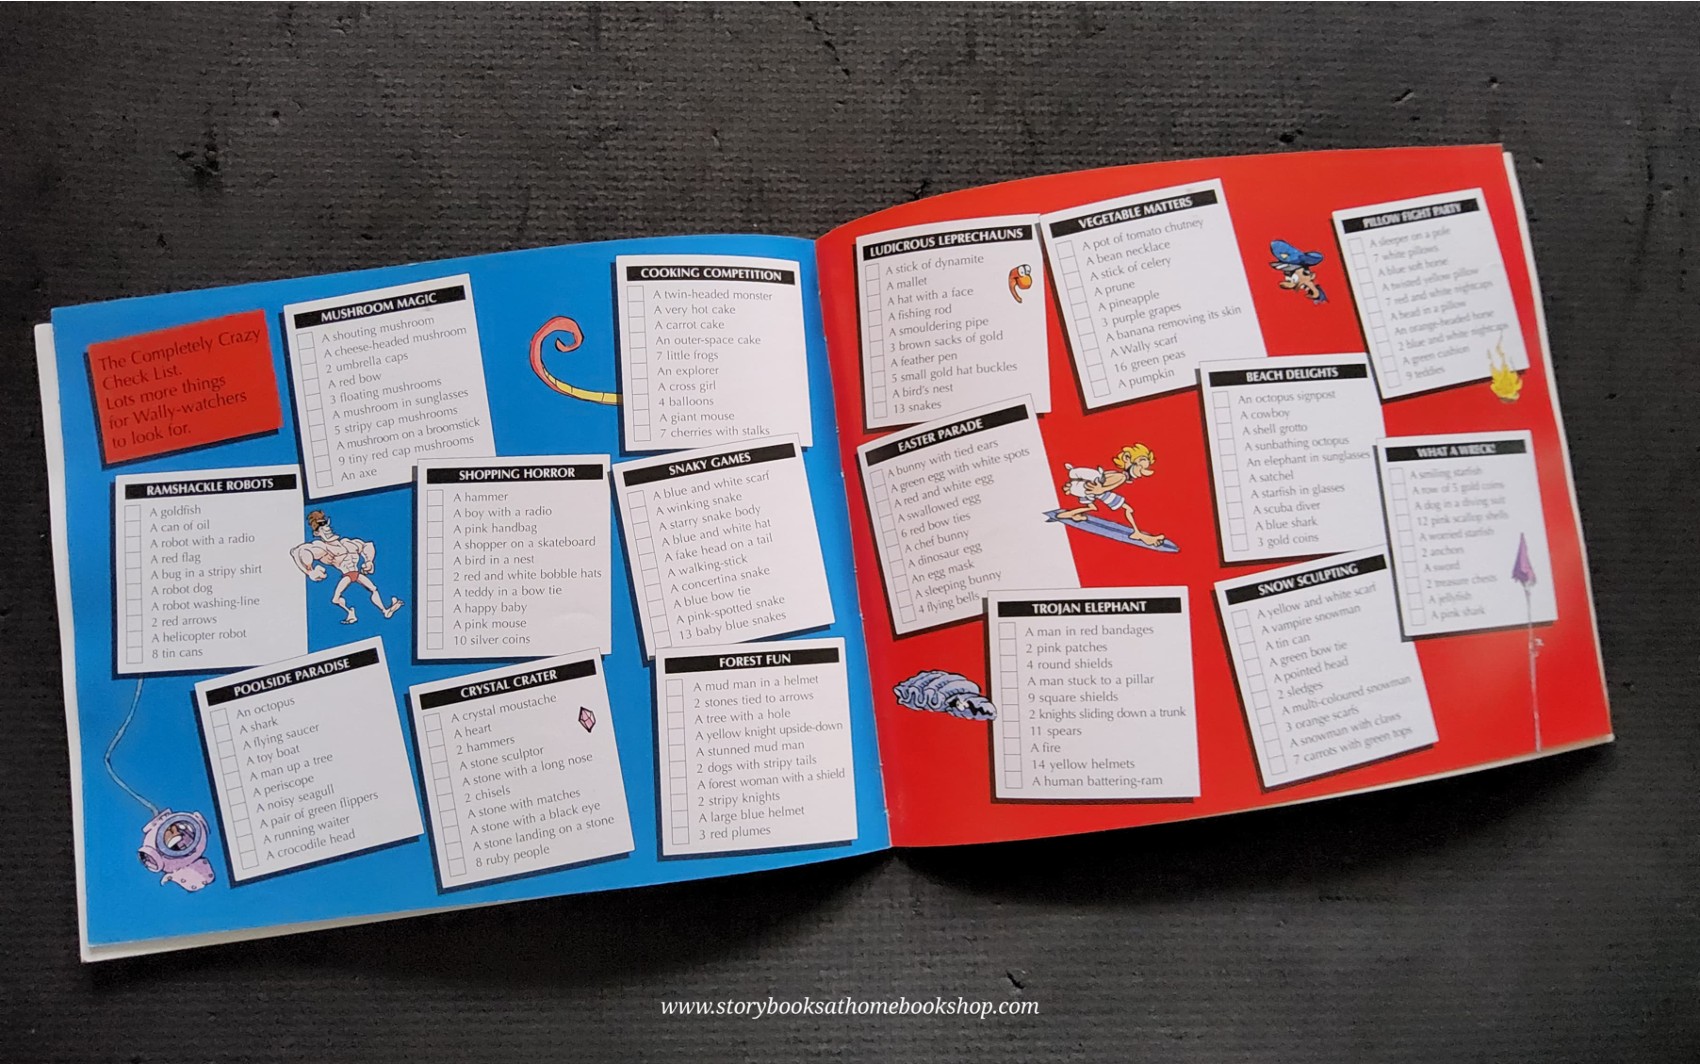 The Completely Crazy
Check List.
Lots more things
for Wally-watchers
to look for.
MUSHROOM MAGIC
A shouting mushroom
A cheese-headed mushroom
2 umbrella caps
A red bow
3 floating mushrooms
A mushroom in sunglasses
5 stripy cap mushrooms
A mushroom on a broomstick
9 tiny red cap mushrooms
An axe
COOKING COMPETITION
A twin-headed monster
A very hot cake
A carrot cake
An outer-space cake
7 little frogs
An explorer
A cross girl
4 balloons
A giant mouse
7 cherries with stalks
RAMSHACKLE ROBOTS
A goldfish
A can of oil
A robot with a radio
A red flag
A bug in a stripy shirt
A robot dog
A robot washing-line
2 red arrows
A helicopter robot
8 tin cans
SHOPPING HORROR
A hammer
A boy with a radio
A pink handbag
A shopper on a skateboard
A bird in a nest
2 red and white bobble hats
A teddy in a bow tie
A happy baby
A pink mouse
10 silver coins
SNAKY GAMES
A blue and white scarf
A winking snake
A starry snake body
A blue and white hat
A fake head on a tail
A walking-stick
A concertina snake
A blue bow tie
A pink-spotted snake
13 baby blue snakes
POOLSIDE PARADISE
An octopus
A shark
A flying saucer
A toy boat
A man up a tree
A periscope
A noisy seagull
A pair of green flippers
A running waiter
A crocodile head
CRYSTAL CRATER
A crystal moustache
A heart
2 hammers
A stone sculptor
A stone with a long nose
2 chisels
A stone with matches
A stone with a black eye
A stone landing on a stone
8 ruby people
FOREST FUN
A mud man in a helmet
2 stones tied to arrows
A tree with a hole
A yellow knight upside-down
A stunned mud man
2 dogs with stripy tails
A forest woman with a shield
2 stripy knights
A large blue helmet
3 red plumes
LUDICROUS LEPRECHAUNS
A stick of dynamite
A mallet
A hat with a face
A fishing rod
A smouldering pipe
3 brown sacks of gold
A feather pen
5 small gold hat buckles
A bird's nest
13 snakes
VEGETABLE MATTERS
A pot of tomato chutney
A bean necklace
A stick of celery
A prune
A pineapple
3 purple grapes
A banana removing its skin
A Wally scarf
16 green peas
A pumpkin
PILLOW FIGHT PARTY
A sleeper on a pole
7 white pillows
A blue soft horse
A twisted yellow pillow
7 red and white nightcaps
A head in a pillow
An orange-headed horse
2 blue and white nightcaps
A green cushion
9 teddies
EASTER PARADE
A bunny with tied ears
A green egg with white spots
A red and white egg
A swallowed egg
6 red bow ties
A chef bunny
A dinosaur egg
An egg mask
A sleeping bunny
4 flying bells
BEACH DELIGHTS
An octopus signpost
A cowboy
A shell grotto
A sunbathing octopus
An elephant in sunglasses
A satchel
A starfish in glasses
A scuba diver
A blue shark
3 gold coins
WHAT A WRECK!
A smiling starfish
A row of 5 gold coins
A dog in a diving suit
12 pink scallop shells
A worried starfish
2 anchors
A sword
2 treasure chests
A jellyfish
A pink shark
TROJAN ELEPHANT
A man in red bandages
2 pink patches
4 round shields
A man stuck to a pillar
9 square shields
2 knights sliding down a trunk
11 spears
A fire
14 yellow helmets
A human battering-ram
SNOW SCULPTING
A yellow and white scarf
A vampire snowman
A tin can
A green bow tie
A pointed head
2 sledges
A multi-coloured snowman
3 orange scarfs
A snowman with claws
7 carrots with green tops
www.storybooksathomebookshop.com